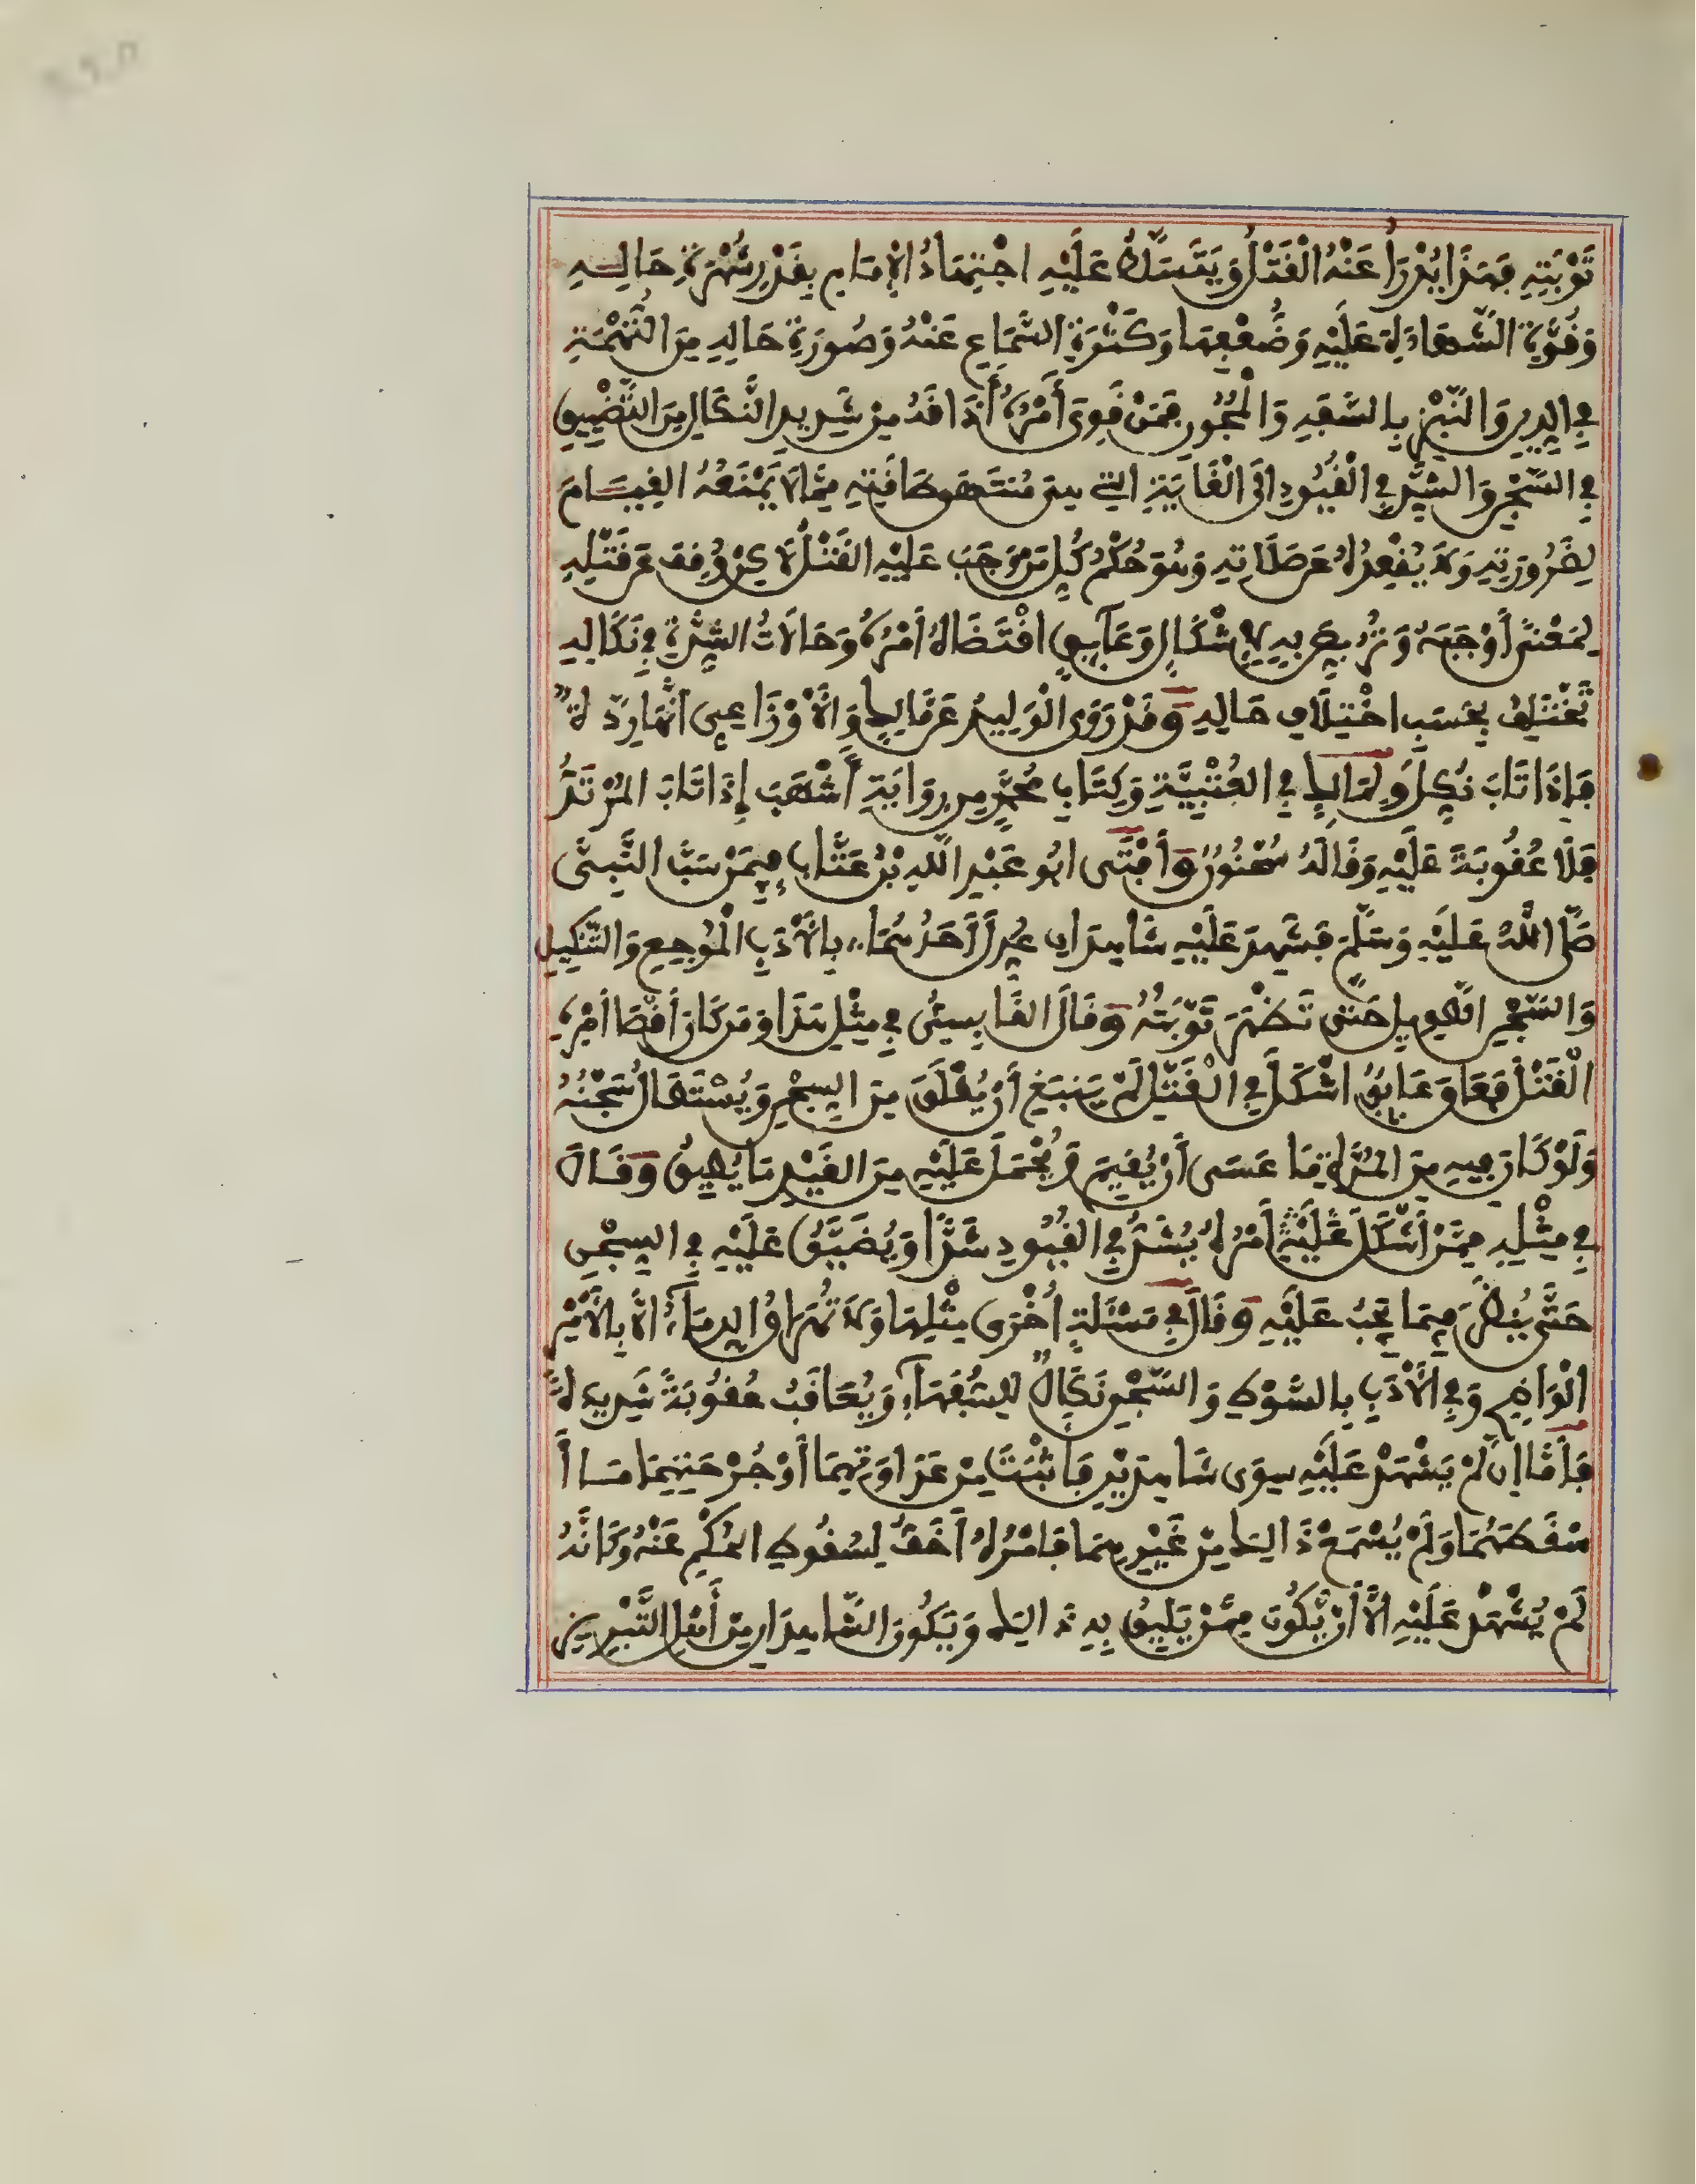 تَوْبَتِهِ فَهَذَا يُدْرَأُ عَنْهُ الْقَتْلُ وَيَتَسَلَّطُ عَلَيْهِ اجْتِهَادُ الْإِمَامِ بِقَدْرِ شُهْرَةِ حَالِهِ
وَقُوَّةِ الشَّهَادَةِ عَلَيْهِ وَضُعْفِهَا وَكَثْرَةِ السَّمَاعِ عَنْهُ وَصُورَةِ حَالِهِ مِنَ التُّهْمَةِ
فِي الدِّينِ وَالنَّبْزِ بِالسَّفَهِ وَالْمُجُونِ فَمَنْ قَوِيَ أَمْرُهُ أَذَاقَهُ مِنْ شَدِيدِ النَّكَالِ مِنَ التَّضْيِيقِ
فِي السِّجْنِ وَالشَّدِّ فِي الْقُيُودِ إِلَى الْغَايَةِ الَّتِي هِيَ مُنْتَهَى طَاقَتِهِ مِمَّا لَا يَمْنَعُهُ الْقِيَامَ
لِضَرُورَتِهِ وَلَا يُقْعِدُهُ عَنْ صَلَاتِهِ وَهُوَ حُكْمُ كُلِّ مَنْ وَجَبَ عَلَيْهِ الْقَتْلُ لَاكِنْ وُقِفَ عَنْ قَتْلِهِ
لِمَعْنًى أَوْجَبَهُ وَتُرُبِّصَ بِهِ لِإِشْكَالٍ وَعَائِقٍ اقْتَضَاهُ أَمْرُهُ وَحَالَاتُ الشِّدَّةِ فِي نَكَالِهِ
تَخْتَلِفُ بِحَسَبِ اخْتِلَافِ حَالِهِ وَقَدْ رَوَى الْوَلِيدُ عَنْ مَالِكٍ وَالْأَوْزَاعِي أَنَّهَا رِدَّةٌ
فَإِذَا تَابَ نُكِّلَ وَلِمَالِكٍ فِي الْعُتْبِيَّةِ وَكِتَابِ مُحَمَّدٍ مِنْ رِوَايَةِ أَشْهَبَ إِذَا تَابَ الْمُرْتَدُّ
فَلَا عُقُوبَةَ عَلَيْهِ وَقَالَهُ سُحْنُونُ وَأَفْتَى أَبُو عَبْدِ اللَّهِ بْنُ عَتَّابٍ فِيمَنْ سَبَّ النَّبِيَّ
صَلَّى اللَّهُ عَلَيْهِ وَسَلَّمَ فَشَهِدَ عَلَيْهِ شَاهِدَانِ عُدِّلَ أَحَدُهُمَا بِالْأَدَبِ الْمُوجِعِ وَالتَّنْكِيلِ
وَالسِّجْنِ الطَّوِيلِ حَتَّى تَظْهَرَ تَوْبَتُهُ وَقَالَ الْقَابِسِيُّ فِي مِثْلِ هَذَا وَمَنْ كَانَ أَقْصَا أَمْرِهِ
الْقَتْلَ فَعَاقَ عَائِقٌ أَشْكَلَ فِي الْقَتْلِ لَمْ يَنْبَغِ أَنْ يُطْلَقَ مِنَ السِّجْنِ وَيُسْتَطَالُ سِجْنُهُ
وَلَوْ كَانَ فِيهِ مِنَ الْمُدَّةِ مَا عَسَى أَنْ يُقِيمَ وَيُحْمَلُ عَلَيْهِ مِنَ الْقَيْدِ مَا يُطِيقُ وَقَالَ
فِي مِثْلِهِ مِمَّنْ أَشْكَلَ عَلَيْهِ أَمْرُهُ يُشَدُّ فِي الْقُيُودِ شَدًّا وَيُضَيَّقُ عَلَيْهِ فِي السِّجْنِ
حَتَّى يُنْظَرَ فِيمَا يَجِبُ عَلَيْهِ وَقَالَ فِي مَسْئَلَةٍ أُخْرَى مِثْلِهَا وَلَا تُهْرَاقُ الدِّمَاءُ إِلَّا بِالْأَمْرِ
الْوَاضِحِ وَفِي الْأَدَبِ بِالسَّوْطِ وَالسِّجْنِ نَكَالٌ لِلسُّفَهَاءِ وَيُعَاقَبُ عُقُوبَةً شَدِيدَةً
فَأَمَّا إِنْ لَمْ يَشْهَدْ عَلَيْهِ سِوَى شَاهِدَيْنِ فَأَثْبَتَ مِنْ عَدَاوَتِهِمَا أَوْ جُرْحَتِهِمَا مَا أَ
سْقَطَهُمَا وَلَمْ يُسْمَعْ ذَالِكَ مِنْ غَيْرِهِمَا فَأَمْرُهُ أَخَفُّ لِسُقُوطِ الْحُكْمِ عَنْهُ وَكَأَنَّهُ
لَمْ يُشْهَدْ عَلَيْهِ إِلَّا أَنْ يَكُونَ مِمَّنْ يَلِيقُ بِهِ ذَالِكَ وَيَكُونَ الشَّاهِدَانِ مِنْ أَهْلِ التَّبْرِيزِ